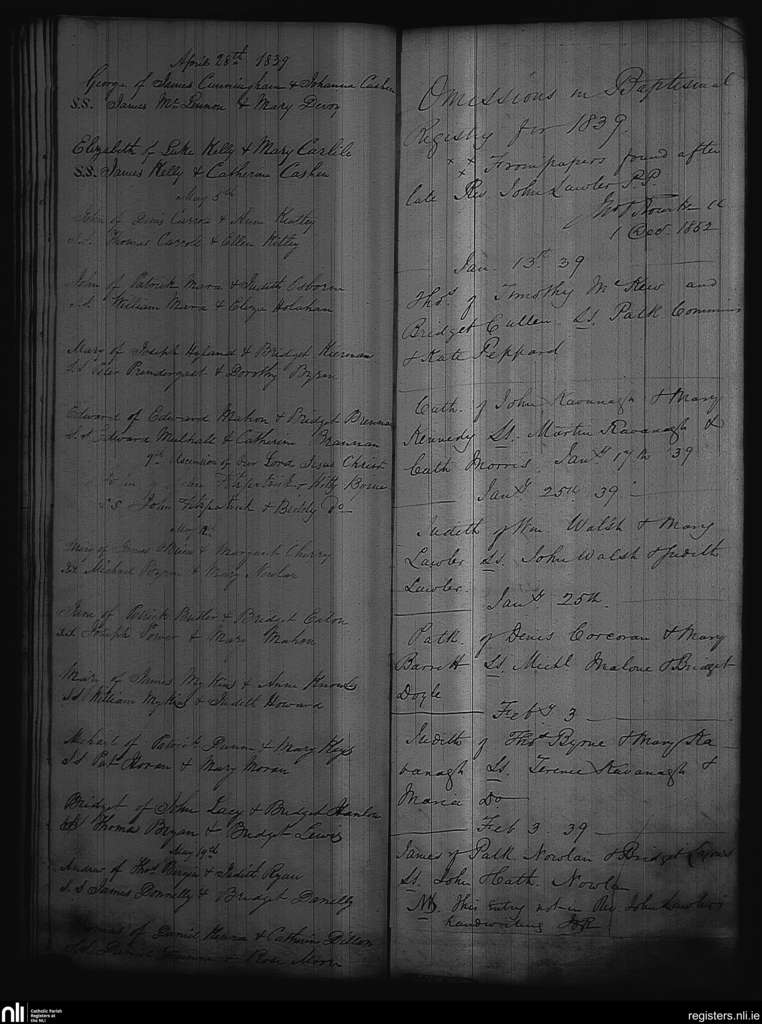 April 28th 1839
George of James Cunningham & Johanna Cashen
S.S. James McLennon & Mary Devoy
Elizabeth of Luke Kelly & Mary Carlile
S.S. James Kelly & Catherine Cashen
May 5th
John of Denis Carroll & Ann
S.S. Thomas Carroll & Ellen
John of Patrick Mara & Judith Osborn
William Mara & Eliza Holahan
Mary of Joseph Hyland & Bridget Kiernan
S.S. Peter Prendergast & Dorothy Byran
Edward of Edward Mahon & Bridget Brennan
S.S. Edward Mulhall & Catherine
9th Ascension of Our Lord Jesus Christ
Fitzpatrick & Kitty
S.S. John Fitzpatrick & Biddy Do
May
Mary of James & Margaret Cherry
Michael & Mary Nowlan
Jane of Patrick Butler & Bridget Eaton
Joseph Power & Mary Mahon
Mary of James Mykins & Anne Knowls
S.S. William Mykins & Judith Howard
Michael of Patrick Dunn & Mary Keys
S.S. Pat Horan & Mary Moran
Bridget of John Lacy & Bridget Hanlon
Thomas Bryan & Bridget Lewis
May 19th
Andrew of Thos Bergin & Judith Ryan
S.S. James Donnelly & Bridget Donnelly
Thomas of Daniel & Catherine Dillon
& Rose Moore
Omissions in Baptismal
Registry for 1839.
x x x From papers found after
late Rev. John Lawler P.P.
1 Dec 1852
Jan. 13th 39
Thos. of Timothy McKew and
Bridget Cullen. Ss. Patk Commins
& Kate Peppard
Cath. of John Kavanagh & Mary
Kennedy Ss. Martin Kavanagh &
Cath Morris. Jany 17th 39
Jany 25th 39
Judith of Wm Walsh & Mary
Lawler Ss. John Walsh & Judith
Lawler.
Jany 25th.
Patk. of Denis Corcoran & Mary
Barrett Ss. Michl Malone & Bridget
Doyle
Feby 3
Judith of Thos Byrne & Mary Ka-
vanagh Ss. Terence Kavanagh &
Maria Do
Feb 3. 39
James of Patk. Nowlan & Bridget
Ss. John & Cath. Nowlan
NB. This entry not in Rev John Lawler's
handwriting
nli
Catholic Parish
Registers at
the NLI
registers.nli.ie